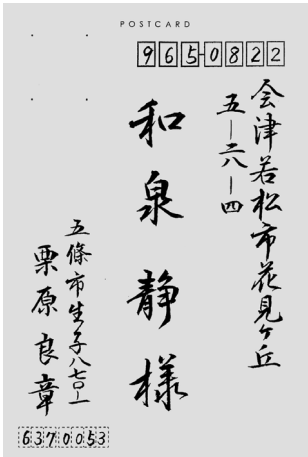 POSTCARD
965-0822
会津若松市花見ケ丘
五ー二八ー四
和泉静様
五條市生子八七〇ー一
栗原良章
6370053